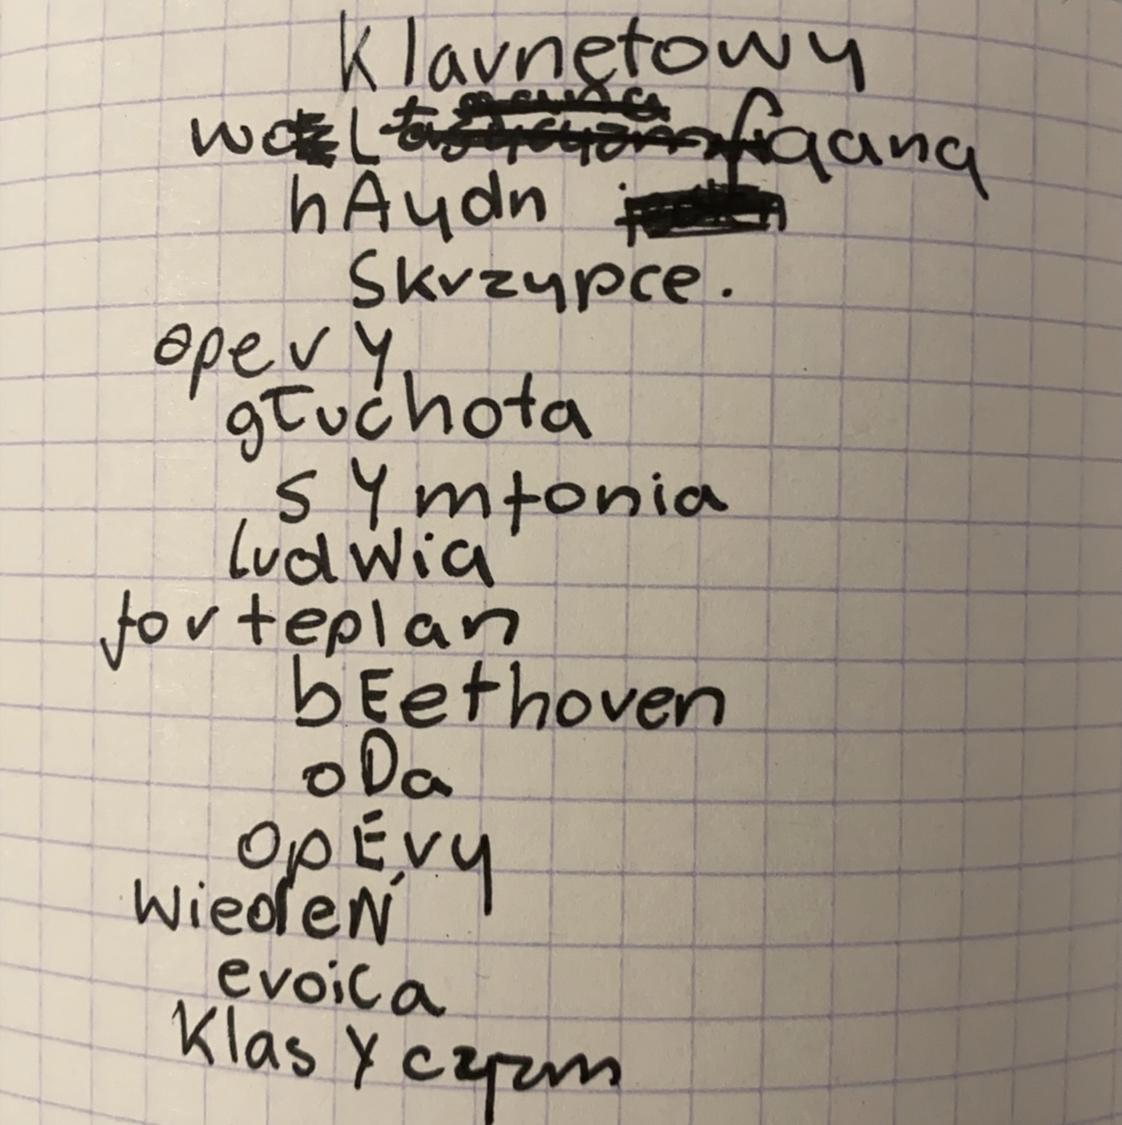 Klarnetowy
wol fgang
hAydn
Skrzypce.
operY
głuchota
sYmfonia
ludWig
forteplan
bEethoven
oDa
opEry
WiedeŃ
eroica
KlasYczzm